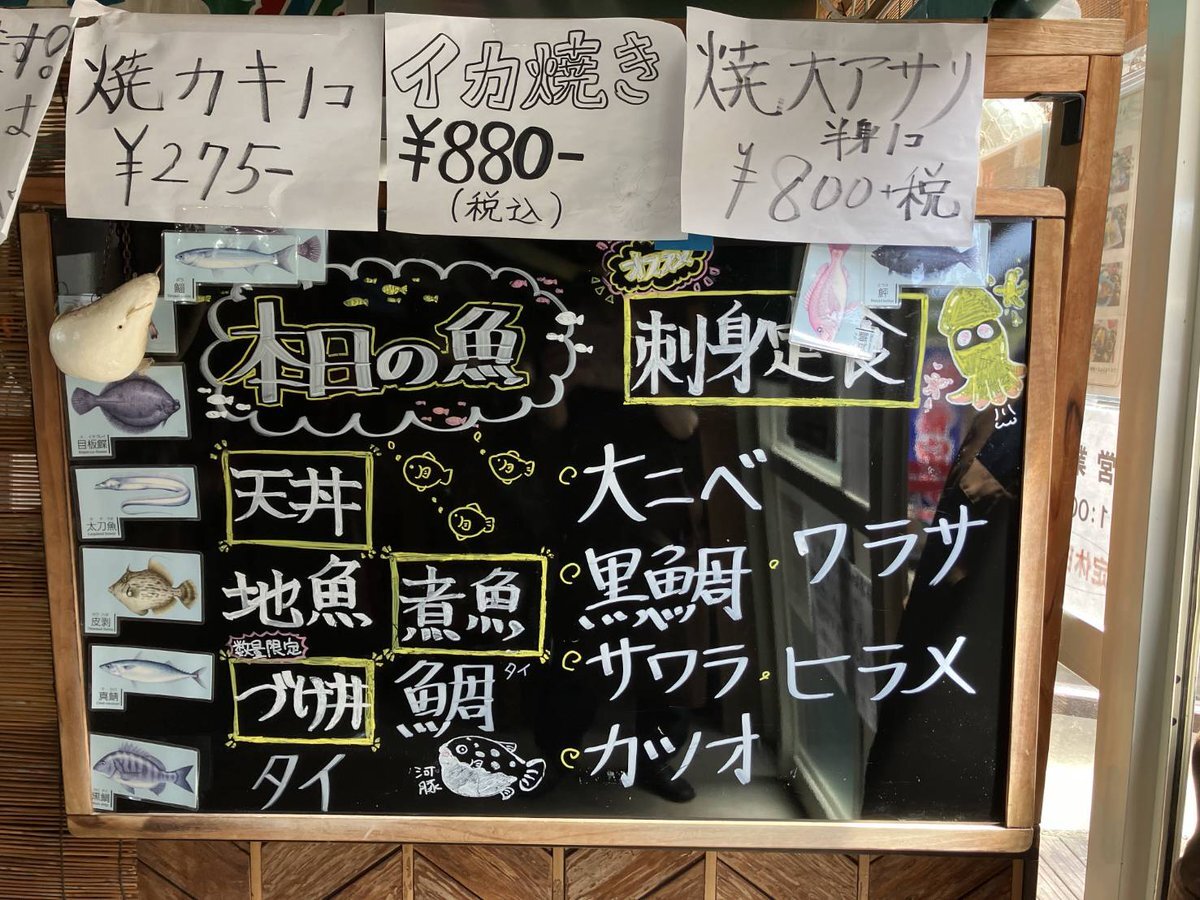 焼カキ1コ
¥275-
イカ焼き
¥880-
(税込)
焼大アサリ
半身1コ
¥800+税
本日の魚
オススメ
刺身定食
天丼
地魚
数量限定
づけ丼
タイ
煮魚
鯛 タイ
河豚
大ニベ
黒鯛
サワラ
カツオ
ワラサ
ヒラメ
鯔
目板鰈
太刀魚
皮剥
真鯖
黒鯛
真鯛